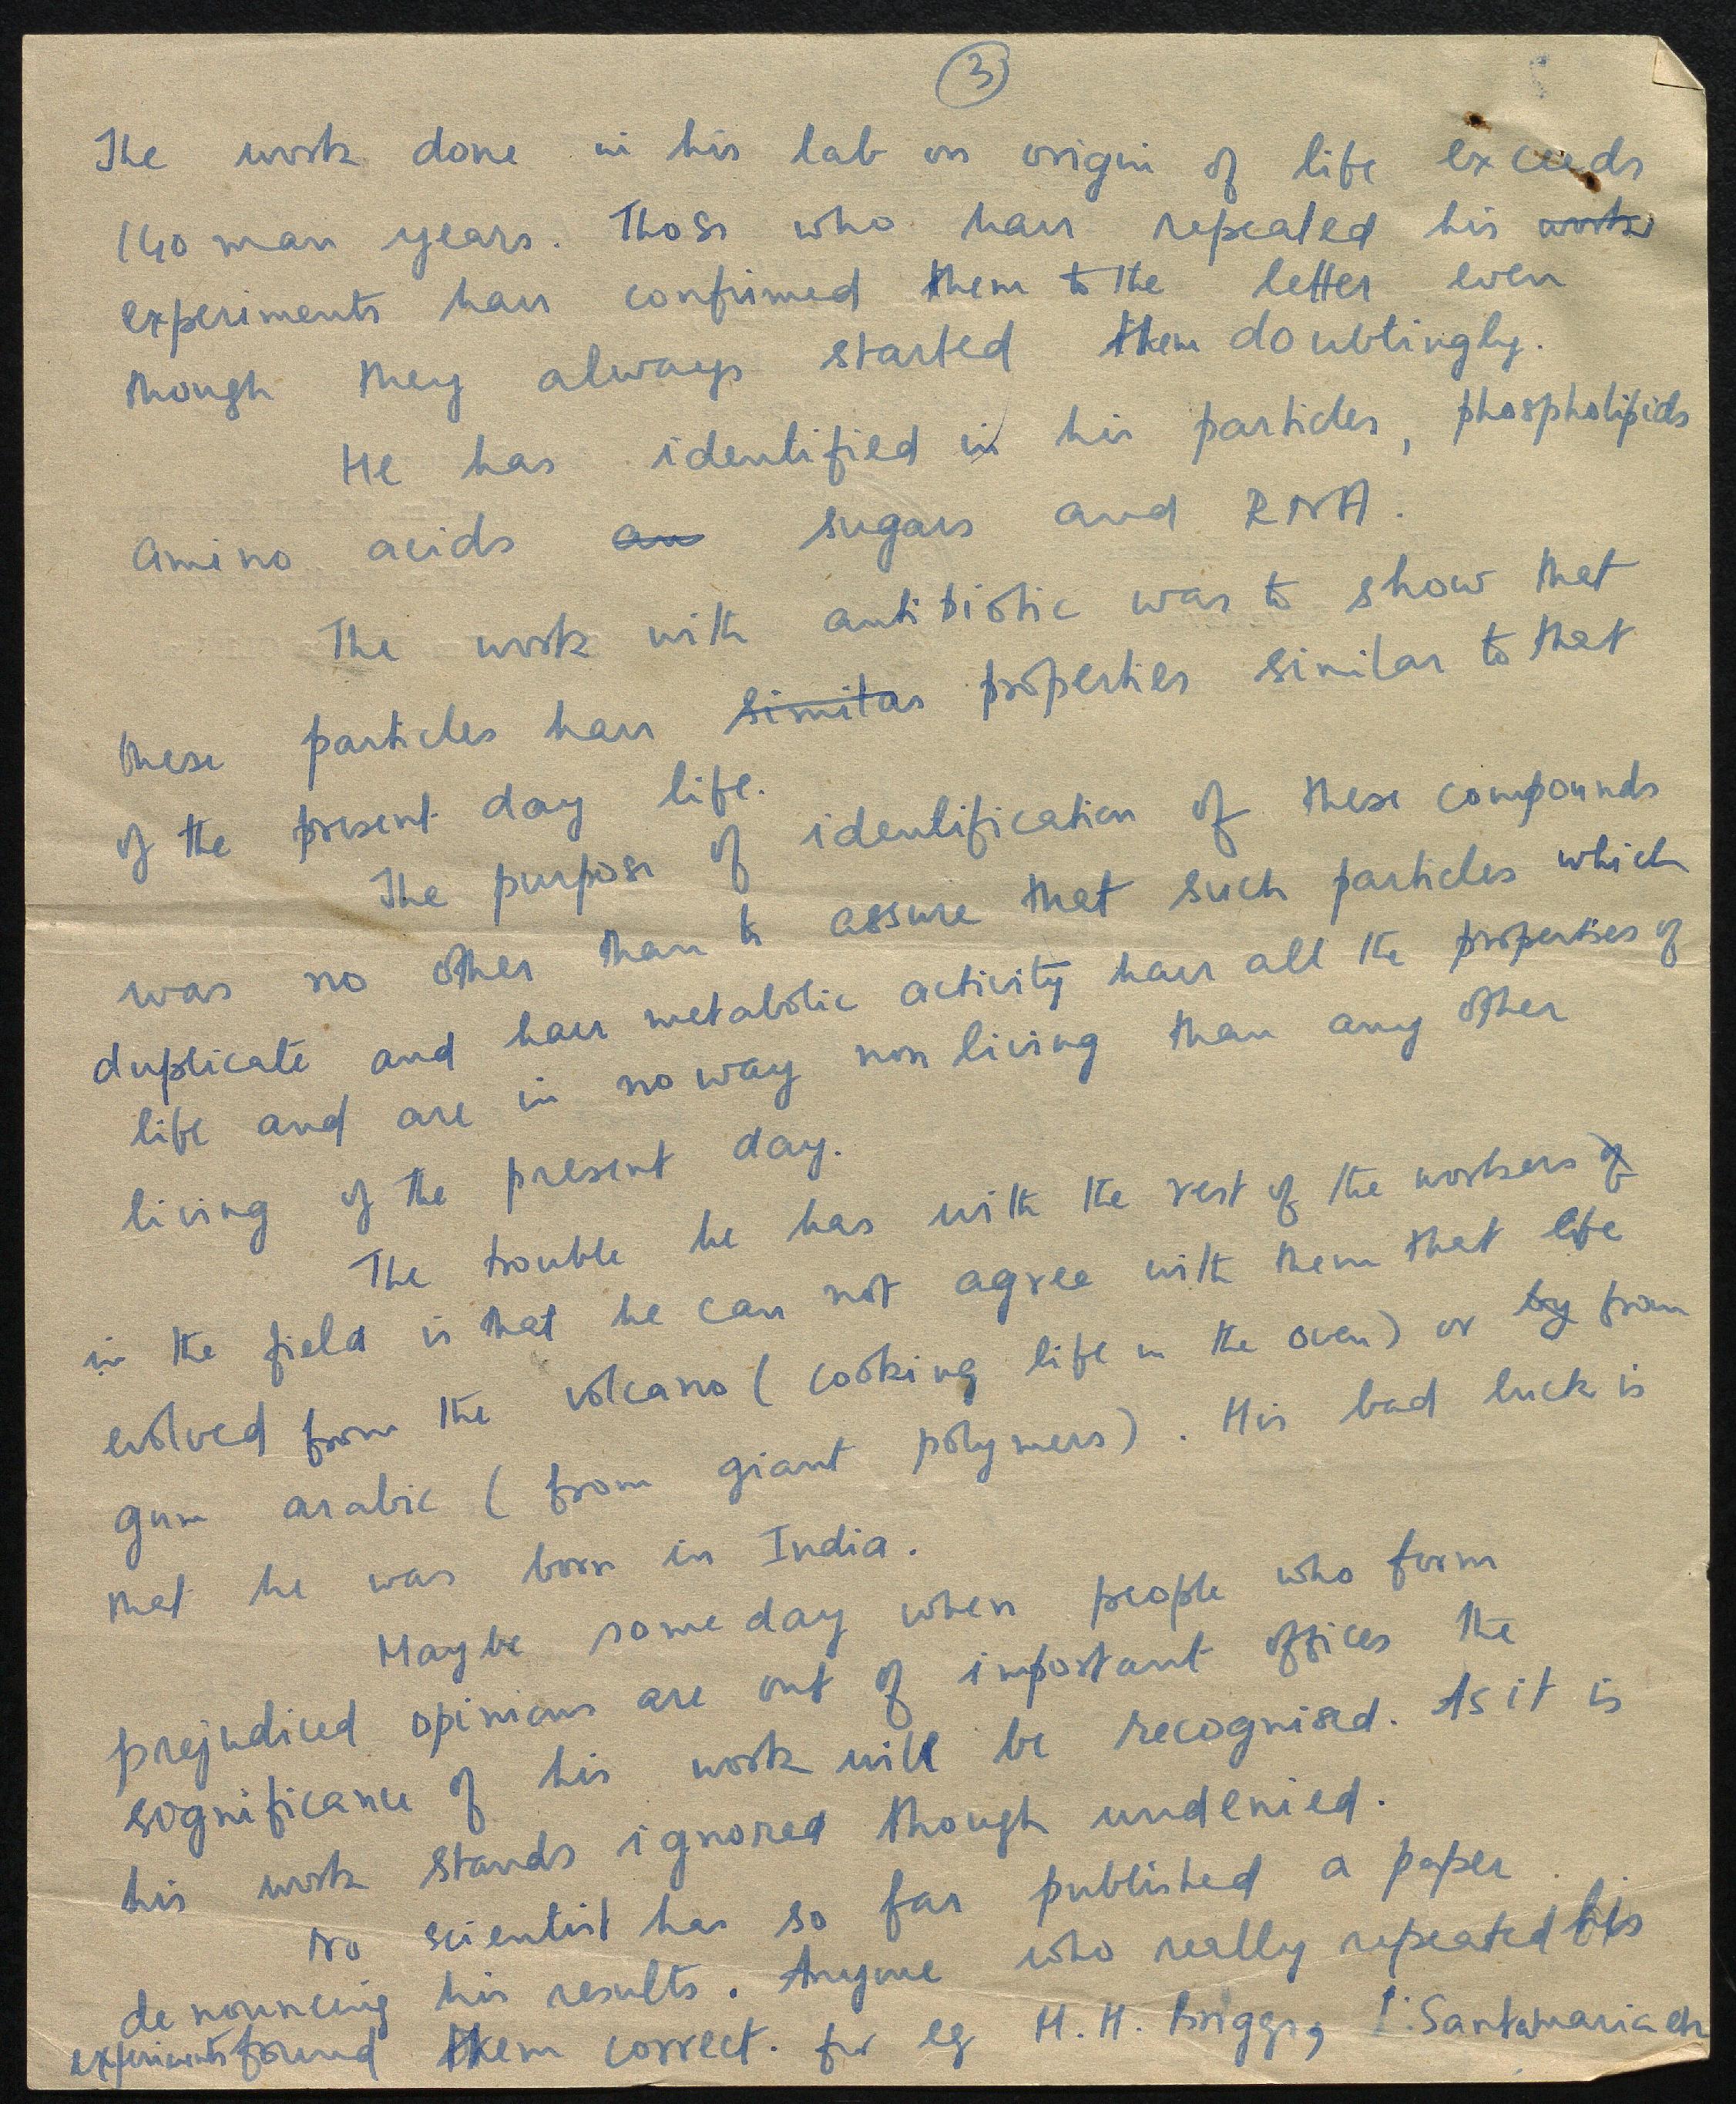 3
The work done in his lab on origin of life exceeds
140 man years. Those who have repeated his work
experiments have confirmed them to the letter even
though they always started them doubtingly.
He has identified in his particles, phospholipids
amino acids an sugars and RNA.
The work with antibiotic was to show that
these particles have similar properties similar to that
of the present day life.
The purpose of identification of these compounds
was no other than to assure that such particles which
duplicate and have metabolic activity have all the properties of
life and are in no way non living than any other
living of the present day.
The trouble he has with the rest of the workers of
in the field is that he can not agree with them that life
evolved from the volcano (cooking life in the oven) or by from
gum arabic (from giant polymers). His bad luck is
that he was born in India.
Maybe someday when people who form
prejudiced opinions are out of important offices the
significance of his work will be recognised. As it is
his work stands ignored though undenied.
No scientist has so far published a paper
denouncing his results. Anyone who really repeated his
experiments found them correct. for eg M. H. Briggs, Santamaria etc